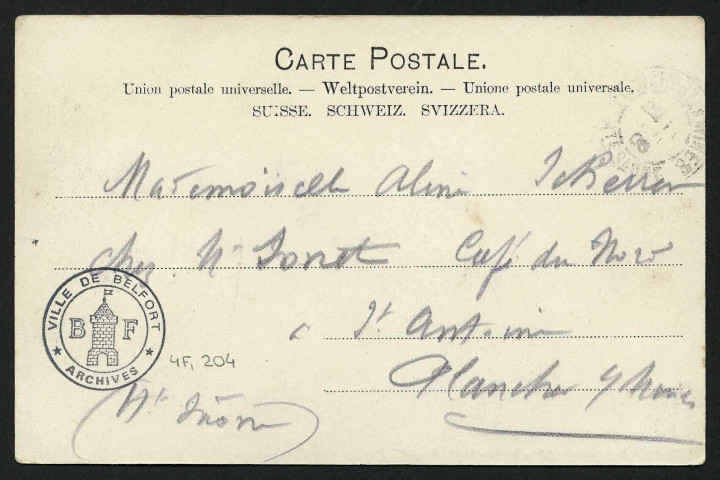 CARTE POSTALE.
Union postale universelle. — Weltpostverein. — Unione postale universale.
SUISSE. SCHWEIZ. SVIZZERA.
Mademoiselle Aline Scherrer
chez Mr Café du Nord
à St Antoine
Plancher
VILLE DE BELFORT
B F
★ ARCHIVES ★
4F, 204
(Hte Saône)